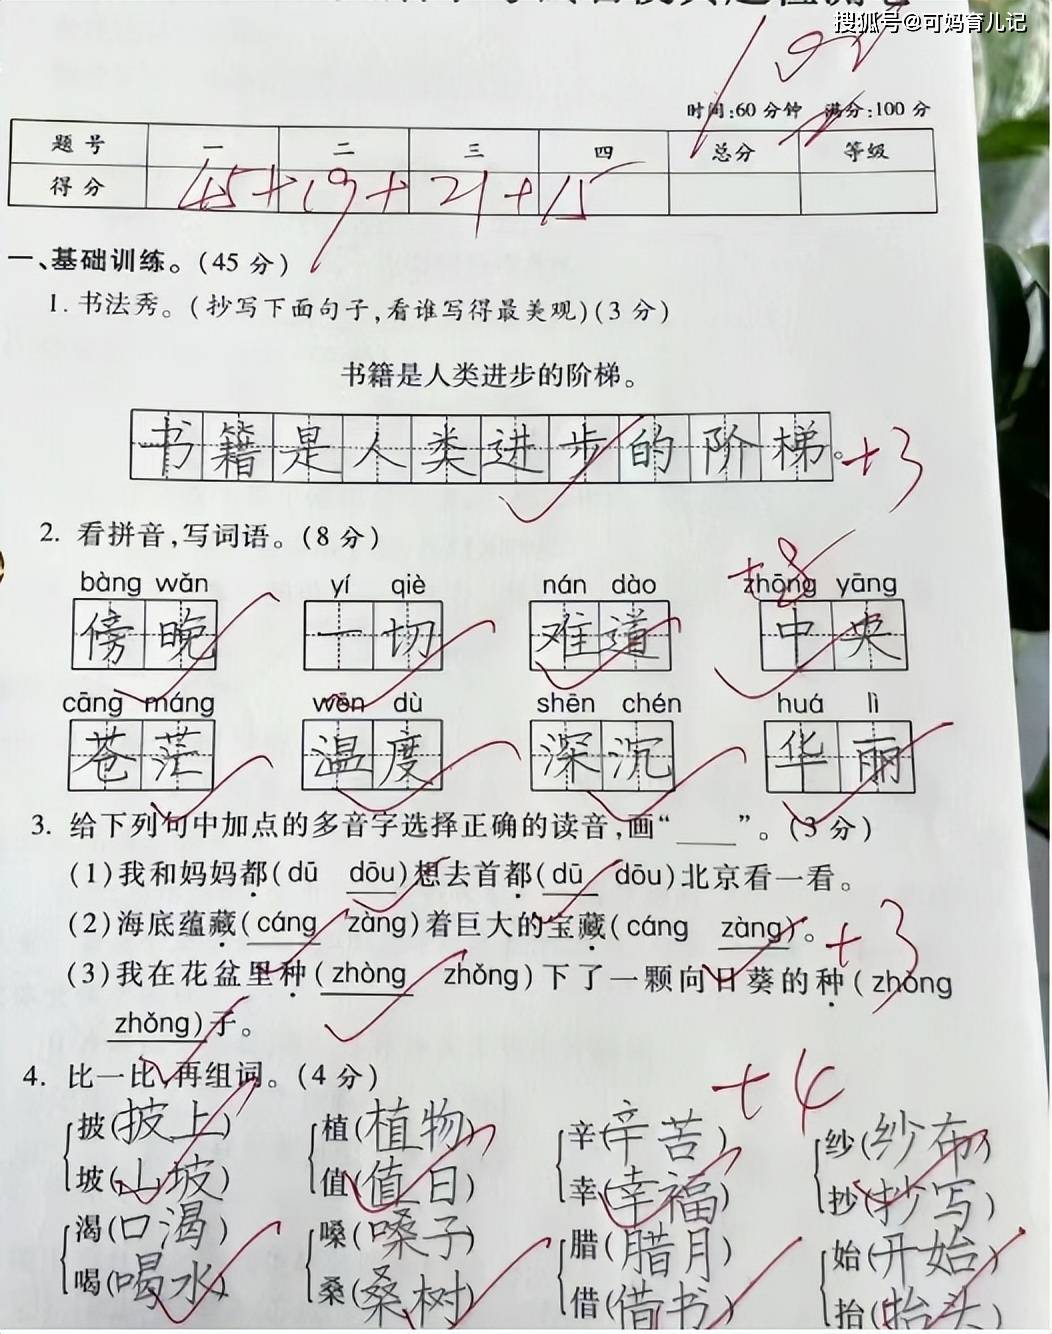 搜狐号@可妈育儿记
100
时间:60分钟 满分:100分
题号 一 二 三 四 总分 等级
得分 45+19+21+15
一、基础训练。(45分)
1.书法秀。(抄写下面句子,看谁写得最美观)(3分)
书籍是人类进步的阶梯。
书籍是人类进步的阶梯。+3
2. 看拼音,写词语。(8分)
+8
bàng wǎn yí qiè nán dào zhōng yāng
傍晚 一切 难道 中央
cāng máng wēn dù shēn chén huá lì
苍茫 温度 深沉 华丽
3. 给下列句中加点的多音字选择正确的读音,画“____”。(3分)
(1)我和妈妈都(dū dōu)想去首都(dū dōu)北京看一看。
(2)海底蕴藏(cáng zàng)着巨大的宝藏(cáng zàng)。+3
(3)我在花盆里种(zhòng zhǒng)下了一颗向日葵的种(zhòng
zhǒng)子。
4. 比一比,再组词。(4分) +4
披(披上) 植(植物) 辛(辛苦) 纱(纱布)
坡(山坡) 值(值日) 幸(幸福) 抄(抄写)
渴(口渴) 嗓(嗓子) 腊(腊月) 始(开始)
喝(喝水) 桑(桑树) 借(借书) 抬(抬头)